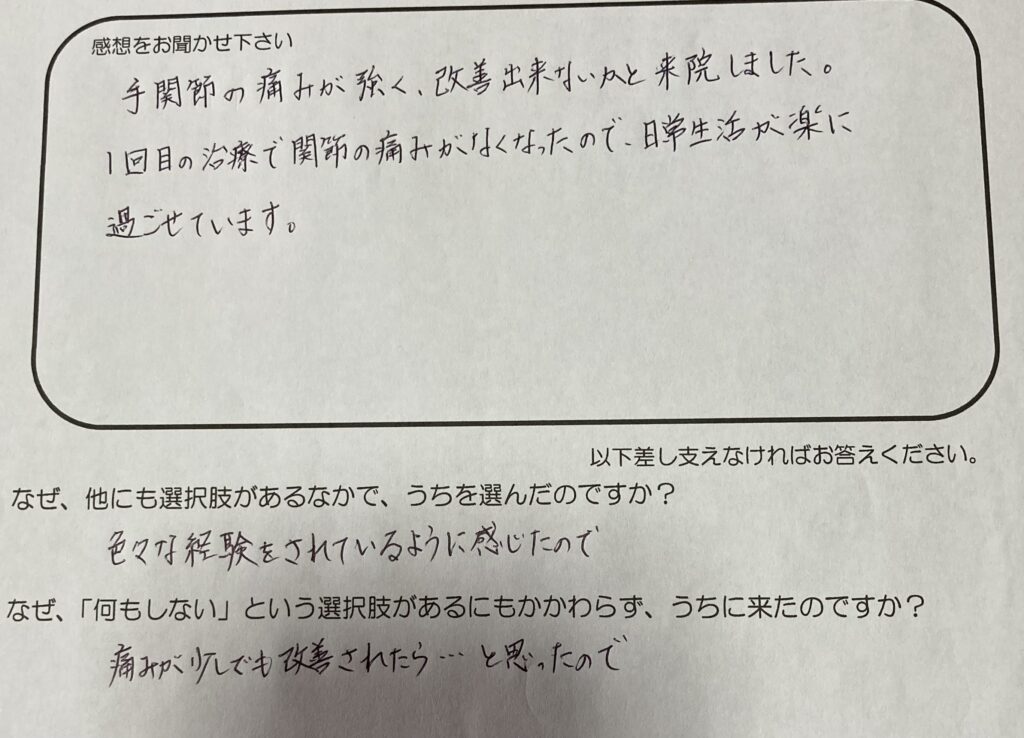 感想をお聞かせ下さい
手関節の痛みが強く、改善出来ないかと来院しました。
1回目の治療で関節の痛みがなくなったので、日常生活が楽に
過ごせています。
以下差し支えなければお答えください。
なぜ、他にも選択肢があるなかで、うちを選んだのですか？
色々な経験をされているように感じたので
なぜ、「何もしない」という選択肢があるにもかかわらず、うちに来たのですか？
痛みが少しでも改善されたら…と思ったので